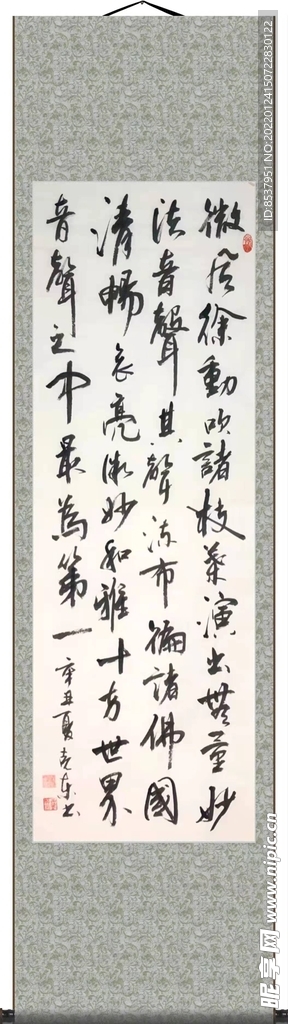 微风徐動吹諸枝葉演出無量妙
法音聲其聲流布徧諸佛國
清暢哀亮微妙和雅十方世界
音聲之中最為第一
辛丑夏克東书
ID:8537951 NO:20220124150722830122
昵享网 www.nipic.cn